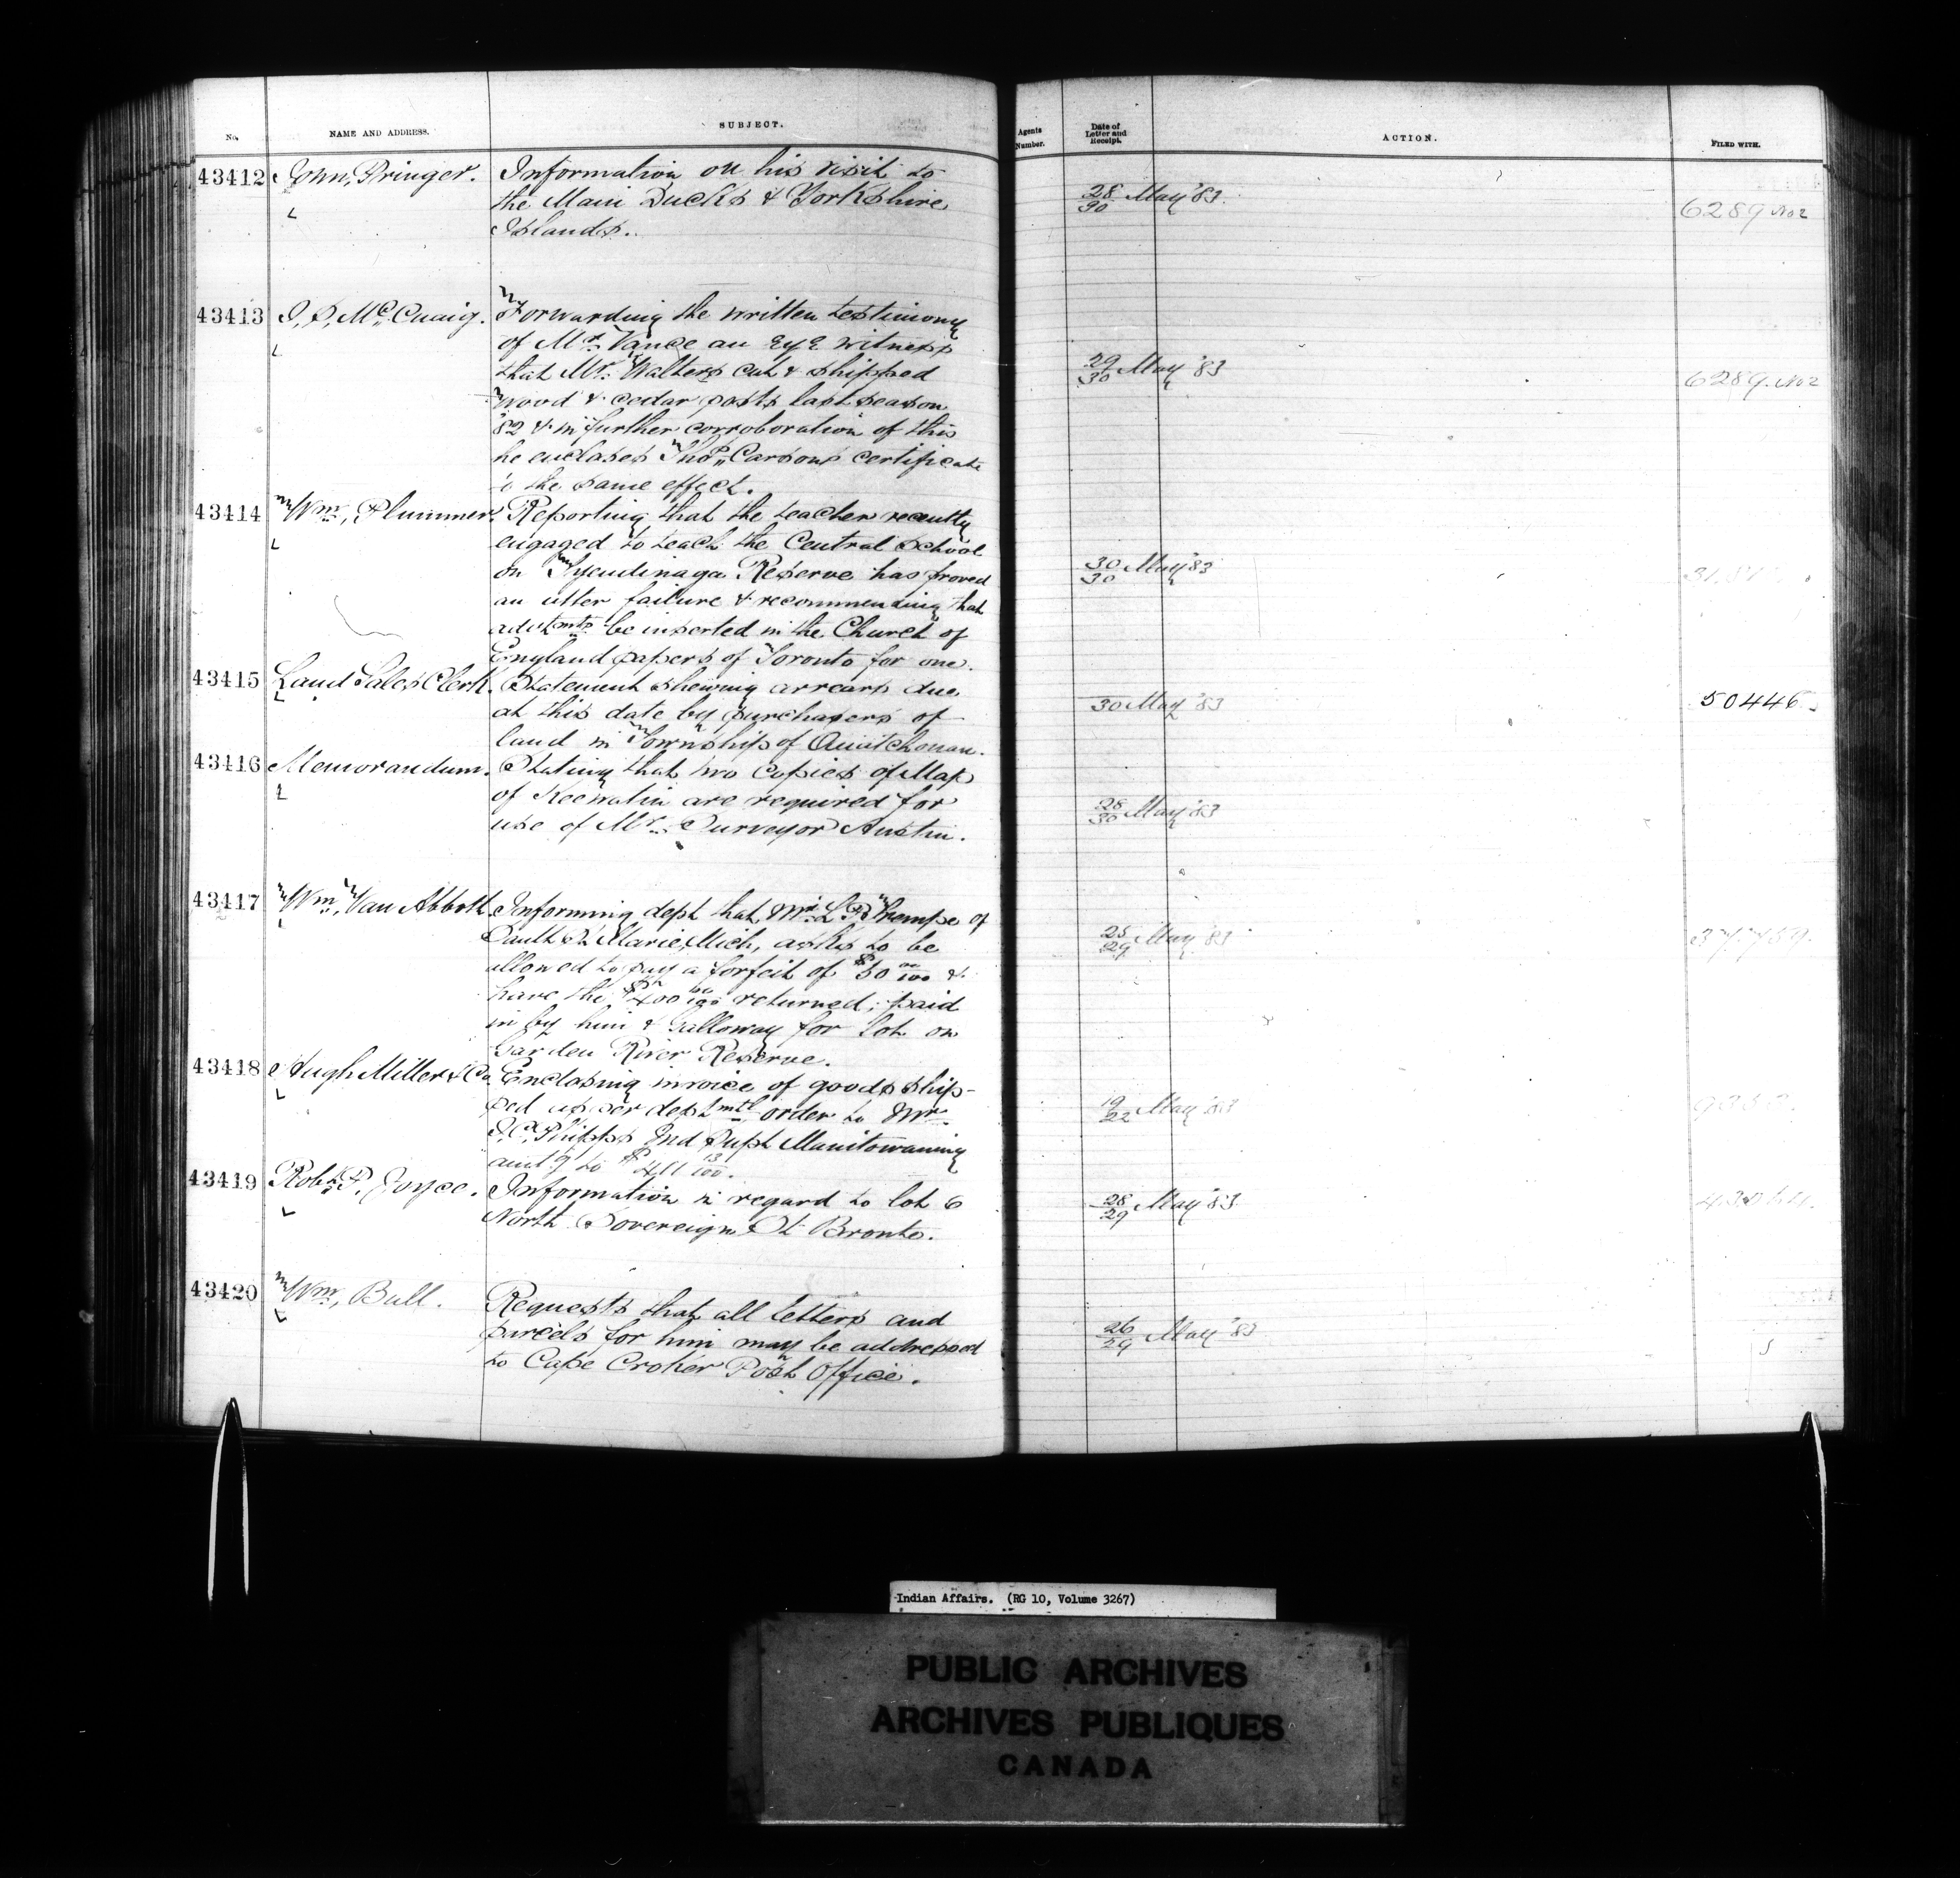 No. NAME AND ADDRESS. SUBJECT. Agents Number. Date of Letter and Receipt. ACTION. FILED WITH.
43412 John Pringer. Information on his visit to
the Main Ducks & Yorkshire 28/30 May '83. 6289 No 2
Islands.
43413 McCuaig. Forwarding the written testimony
of Mr. Vance an Eye witness
that Mr. Walters cut & shipped 29/30 May '83 6289. No 2
wood & cedar posts last season
'82 & in further corroboration of this
he encloses Thos. Carsons certificate
to the same effect.
43414 Wm. Plummer. Reporting that the teacher recently
engaged to teach the Central School
on Tyendinaga Reserve has proved 30/30 May '83
an utter failure & recommending that
advtmts be inserted in the Church of
England papers of Toronto for one.
43415 Land Sales Clerk. Statement shewing arrears due
at this date by purchasers of 30 May '83 50446.
land in Township of Ouiatchouan.
43416 Memorandum. Stating that two Copies of Map
of Keewatin are required for 28/30 May '83
use of Mr. Surveyor Austin.
43417 Wm. Van Abbott. Informing dept that Mr. L. P. Trempe of
Sault St Marie, Mich, asks to be 25/29 May '83
allowed to pay a forfeit of $50 00/100 &
have the $400 00/100 returned; paid
in by him & Galloway for lot on
Garden River Reserve.
43418 Hugh Miller & Co. Enclosing invoice of goods ship-
ped as per deptmtl order to Mr. 19/22 May '83
J. C. Phipps Ind Supt Manitowaning
amtg to $411 13/100.
43419 Robt. P. Joyce. Information in regard to lot 6 28/29 May '83.
North Sovereign St Bronte.
43420 Wm. Bull. Requests that all letters and
parcels for him may be addressed 26/29 May '83
to Cape Croker Post Office.
Indian Affairs. (RG 10, Volume 3267)
PUBLIC ARCHIVES
ARCHIVES PUBLIQUES
CANADA